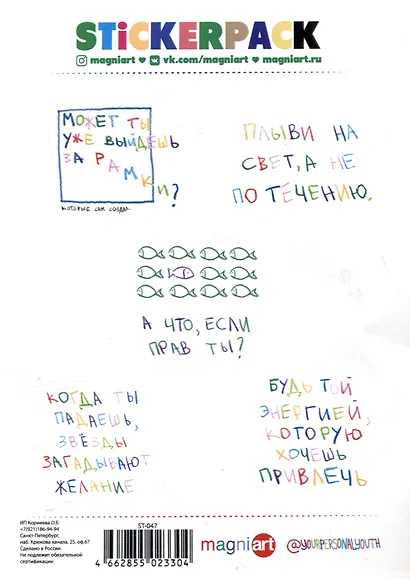 STiCKERPACK
magniart ♥ vk.com/magniart ♥ magniart.ru
МОЖЕТ ТЫ
УЖЕ ВЫЙДЕШЬ
ЗА РАМКИ?
КОТОРЫЕ САМ СОЗДАЛ.
ПЛЫВИ НА
СВЕТ, А НЕ
ПО ТЕЧЕНИЮ.
А ЧТО, ЕСЛИ
ПРАВ ТЫ?
КОГДА ТЫ
ПАДАЕШЬ,
ЗВЁЗДЫ
ЗАГАДЫВАЮТ
ЖЕЛАНИЕ
БУДЬ ТОЙ
ЭНЕРГИЕЙ,
КОТОРУЮ
ХОЧЕШЬ
ПРИВЛЕЧЬ
ИП Корнеева О.Б
+7(921)186-94-94
Санкт-Петербург,
наб. Крюкова канала, 25, оф.67
Сделано в России.
Не подлежит обязательной
сертификации
ST-047
4 662855 023304
magniart
@YOURPERSONALYOUTH